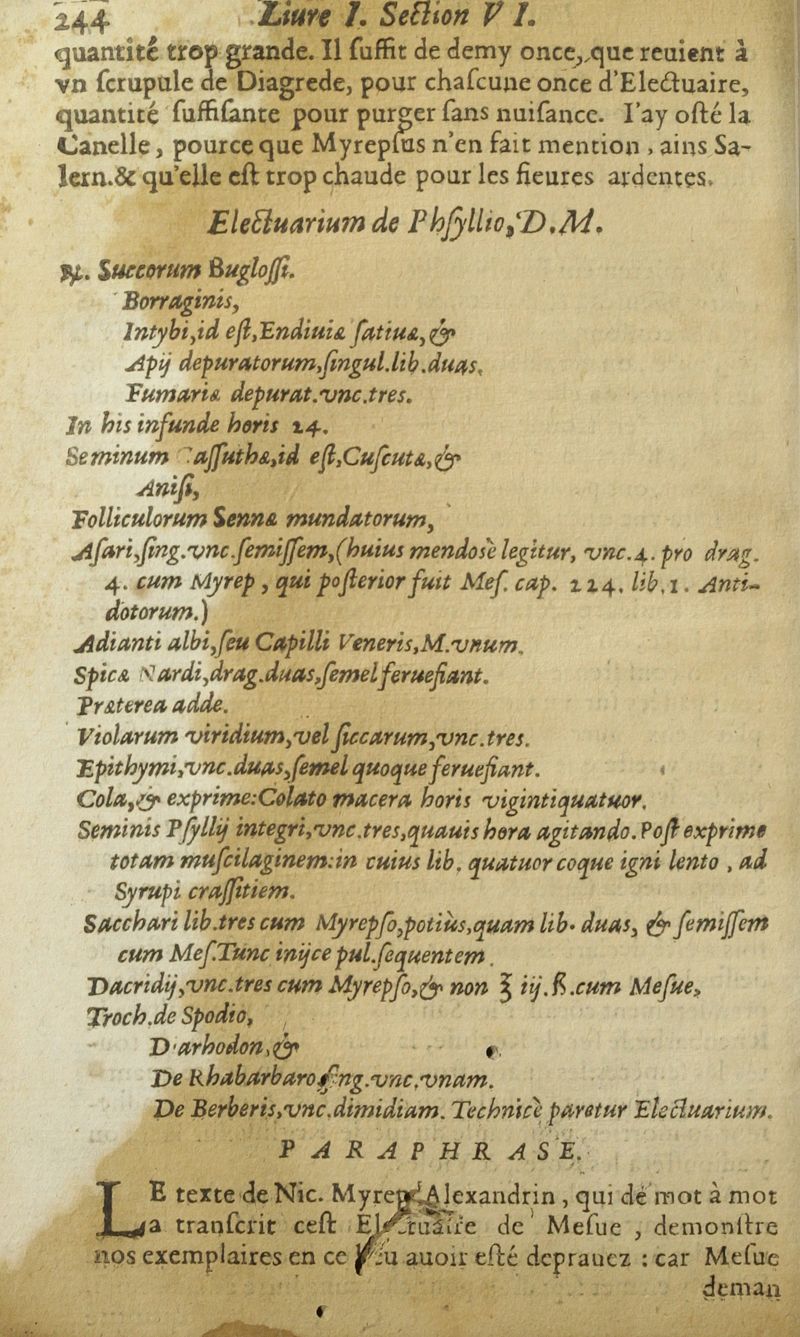 244 Liure I. Section VI.
quantité trop grande. Il suffit de demy once, que reuient à
vn scrupule de Diagrede, pour chascune once d'Electuaire,
quantité suffisante pour purger sans nuisance. I'ay osté la
Canelle, pource que Myrepsus n'en fait mention, ains Sa-
lern. & qu'elle est trop chaude pour les fieures ardentes.
Electuarium de Phsyllio, D.M.
℞. Succorum Buglossi.
Borraginis,
Intybi, id est, Endiuiæ satiuæ, &
Apij depuratorum, singul. lib. duas,
Fumariæ depurat. vnc. tres.
In his infunde horis 24.
Seminum Cassuthæ, id est, Cuscutæ, &
Anisi,
Folliculorum Sennæ mundatorum,
Asari, sing. vnc. semissem, (huius mendosè legitur, vnc. 4. pro drag.
4. cum Myrep, qui posterior fuit Mes. cap. 124. lib. 1. Anti-
dotorum.)
Adianti albi, seu Capilli Veneris, M. vnum.
Spicæ Nardi, drag. duas, semel feruefiant.
Præterea adde.
Violarum viridium, vel siccarum, vnc. tres.
Epithymi, vnc. duas, semel quoque feruefiant.
Cola, & exprime: Colato macera horis vigintiquatuor.
Seminis Psyllij integri, vnc. tres, quauis hora agitando. Post exprime
totam muscilaginem: in cuius lib. quatuor coque igni lento, ad
Syrupi crassitiem.
Sacchari lib. tres cum Myrepso, potiùs, quam lib. duas, & semissem
cum Mes. Tunc inijce pul. sequentem.
Dacridij, vnc. tres cum Myrepso, & non ℥ iij. ß. cum Mesue,
Troch. de Spodio,
D'arhodon, &
De Rhabarbaro sing. vnc. vnam.
De Berberis, vnc. dimidiam. Technicè paretur Electuarium.
PARAPHRASE.
LE texte de Nic. Myreps Alexandrin, qui de mot à mot
a transcrit cest Electuaire de Mesue, demonstre
nos exemplaires en ce lieu auoir esté deprauez : car Mesue
deman